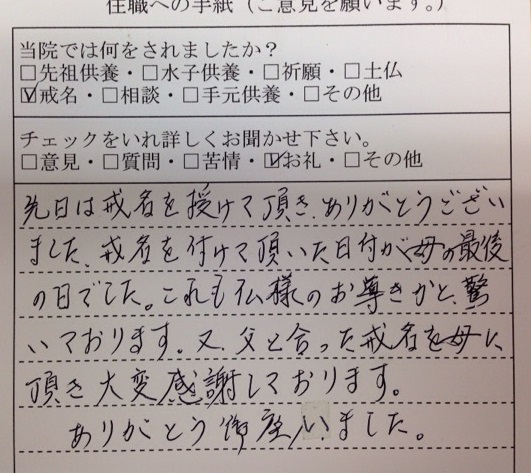 住職への手紙（ご意見を願います。）
当院では何をされましたか？
□先祖供養・□水子供養・□祈願・□土仏
☑戒名・□相談・□手元供養・□その他
チェックをいれ詳しくお聞かせ下さい。
□意見・□質問・□苦情・☑お礼・□その他
先日は戒名を授けて頂き、ありがとうござい
ました。戒名を付けて頂いた日付が母の最後
の日でした。これも仏様のお導きかと、驚
いております。又、父と合った戒名を母に
頂き大変感謝しております。
ありがとう御座いました。